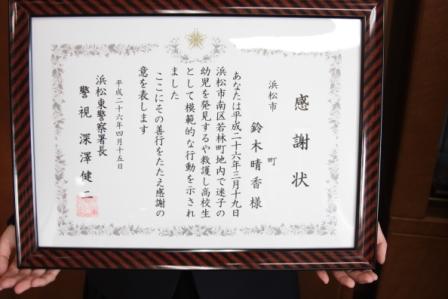 感謝状
浜松市 町
鈴木晴香様
あなたは平成二十六年三月十九日
浜松市南区若林町地内で迷子の
幼児を発見するや救護し高校生
として模範的な行動を示され
ました
ここにその善行をたたえ感謝の
意を表します
平成二十六年四月十五日
浜松東警察署長
警視 深澤健二